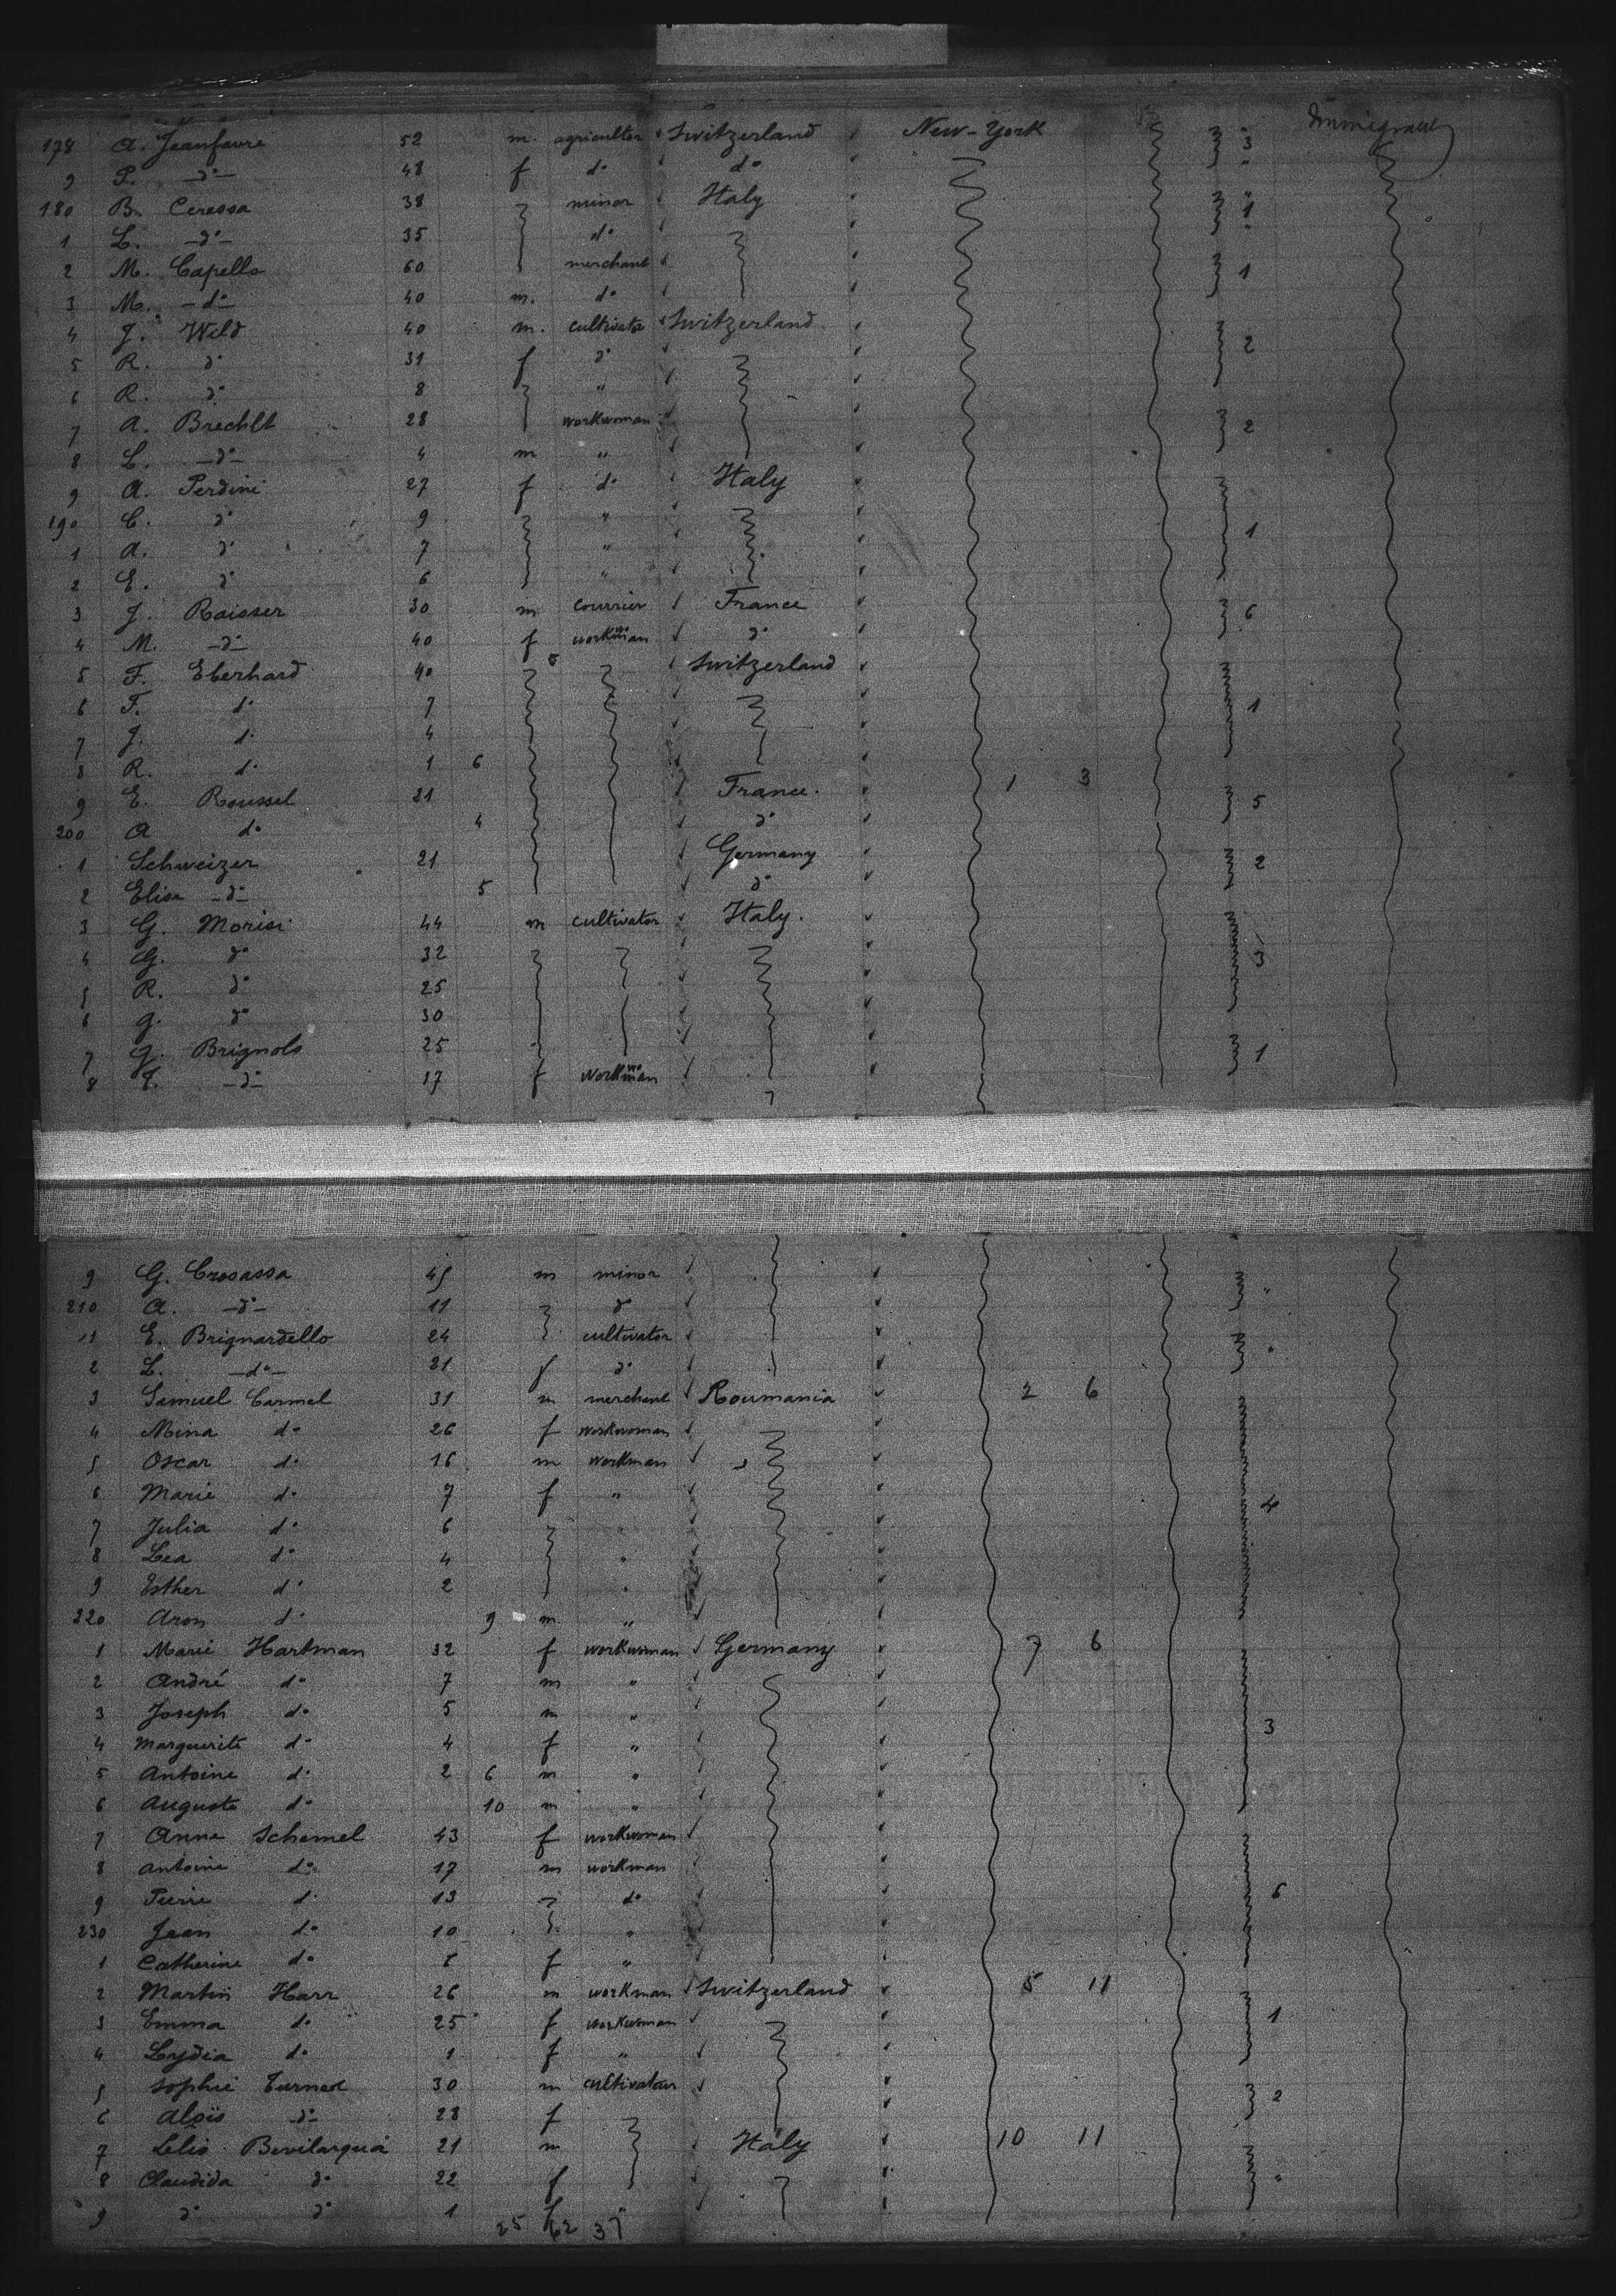 178 A. Jeanfavre 52 m. agricultor Switzerland New-York 3 Immigrant
9 P. -do- 48 f do do "
180 B. Ceressa 38 minor Italy 1
1 L. -do- 35 do
2 M. Capello 60 merchant 1
3 M. -do- 40 m. do
4 J. Wild 40 m. cultivator Switzerland 2
5 R. do 31 f do
6 R. do 8 "
7 A. Brechlt 28 workwoman 2
8 L. -do- 4 m "
9 A. Perdini 27 f do Italy
190 C. do 9 " 1
1 A. do 7 "
2 E. do 6 "
3 J. Raisser 30 m courrier France 6
4 M. -do- 40 f workwoman do
5 F. Eberhard 40 Switzerland
6 F. do 7 1
7 J. do 4
8 R. do 1 6
9 E. Roussel 21 France. 1 3 5
200 A do 4 do
1 Schweizer 21 Germany 2
2 Elise -do- 5 do
3 G. Morisi 44 m cultivator Italy.
4 G. do 32 3
5 R. do 25
6 g. do 30
7 g. Brignolo 25 1
8 -do- 17 f workwoman
9 G. Crosassa 45 m minor "
210 A. -do- 11 do
11 E. Brignardello 24 cultivator "
2 L. -do- 21 f do
3 Samuel Carmel 31 m merchant Roumania 2 6
4 Mina do 26 f workwoman
5 Oscar do 16 m workman
6 Marie do 7 f " 4
7 Julia do 6 "
8 Lea do 4 "
9 Esther do 2 "
220 Aron do 9 m "
1 Marie Hartman 32 f workwoman Germany 7 6
2 André do 7 m "
3 Joseph do 5 m " 3
4 Marguerite do 4 f "
5 Antoine do 2 6 m "
6 Auguste do 10 m "
7 Anne Schemel 43 f workwoman
8 Antoine do 17 m workman
9 Pierre do 13 do 6
230 Jean do 10 "
1 Catherine do 8 f "
2 Martin Harr 26 m workman Switzerland 5 11
3 Emma do 25 f workwoman 1
4 Lydia do 1 f "
5 Sophie 30 m cultivator 2
6 Aloïs -do- 28 f
7 Lelio Bevilarqua 21 m Italy 10 11
8 Claudida do 22 f "
9 do do 1 f "
25 62 37